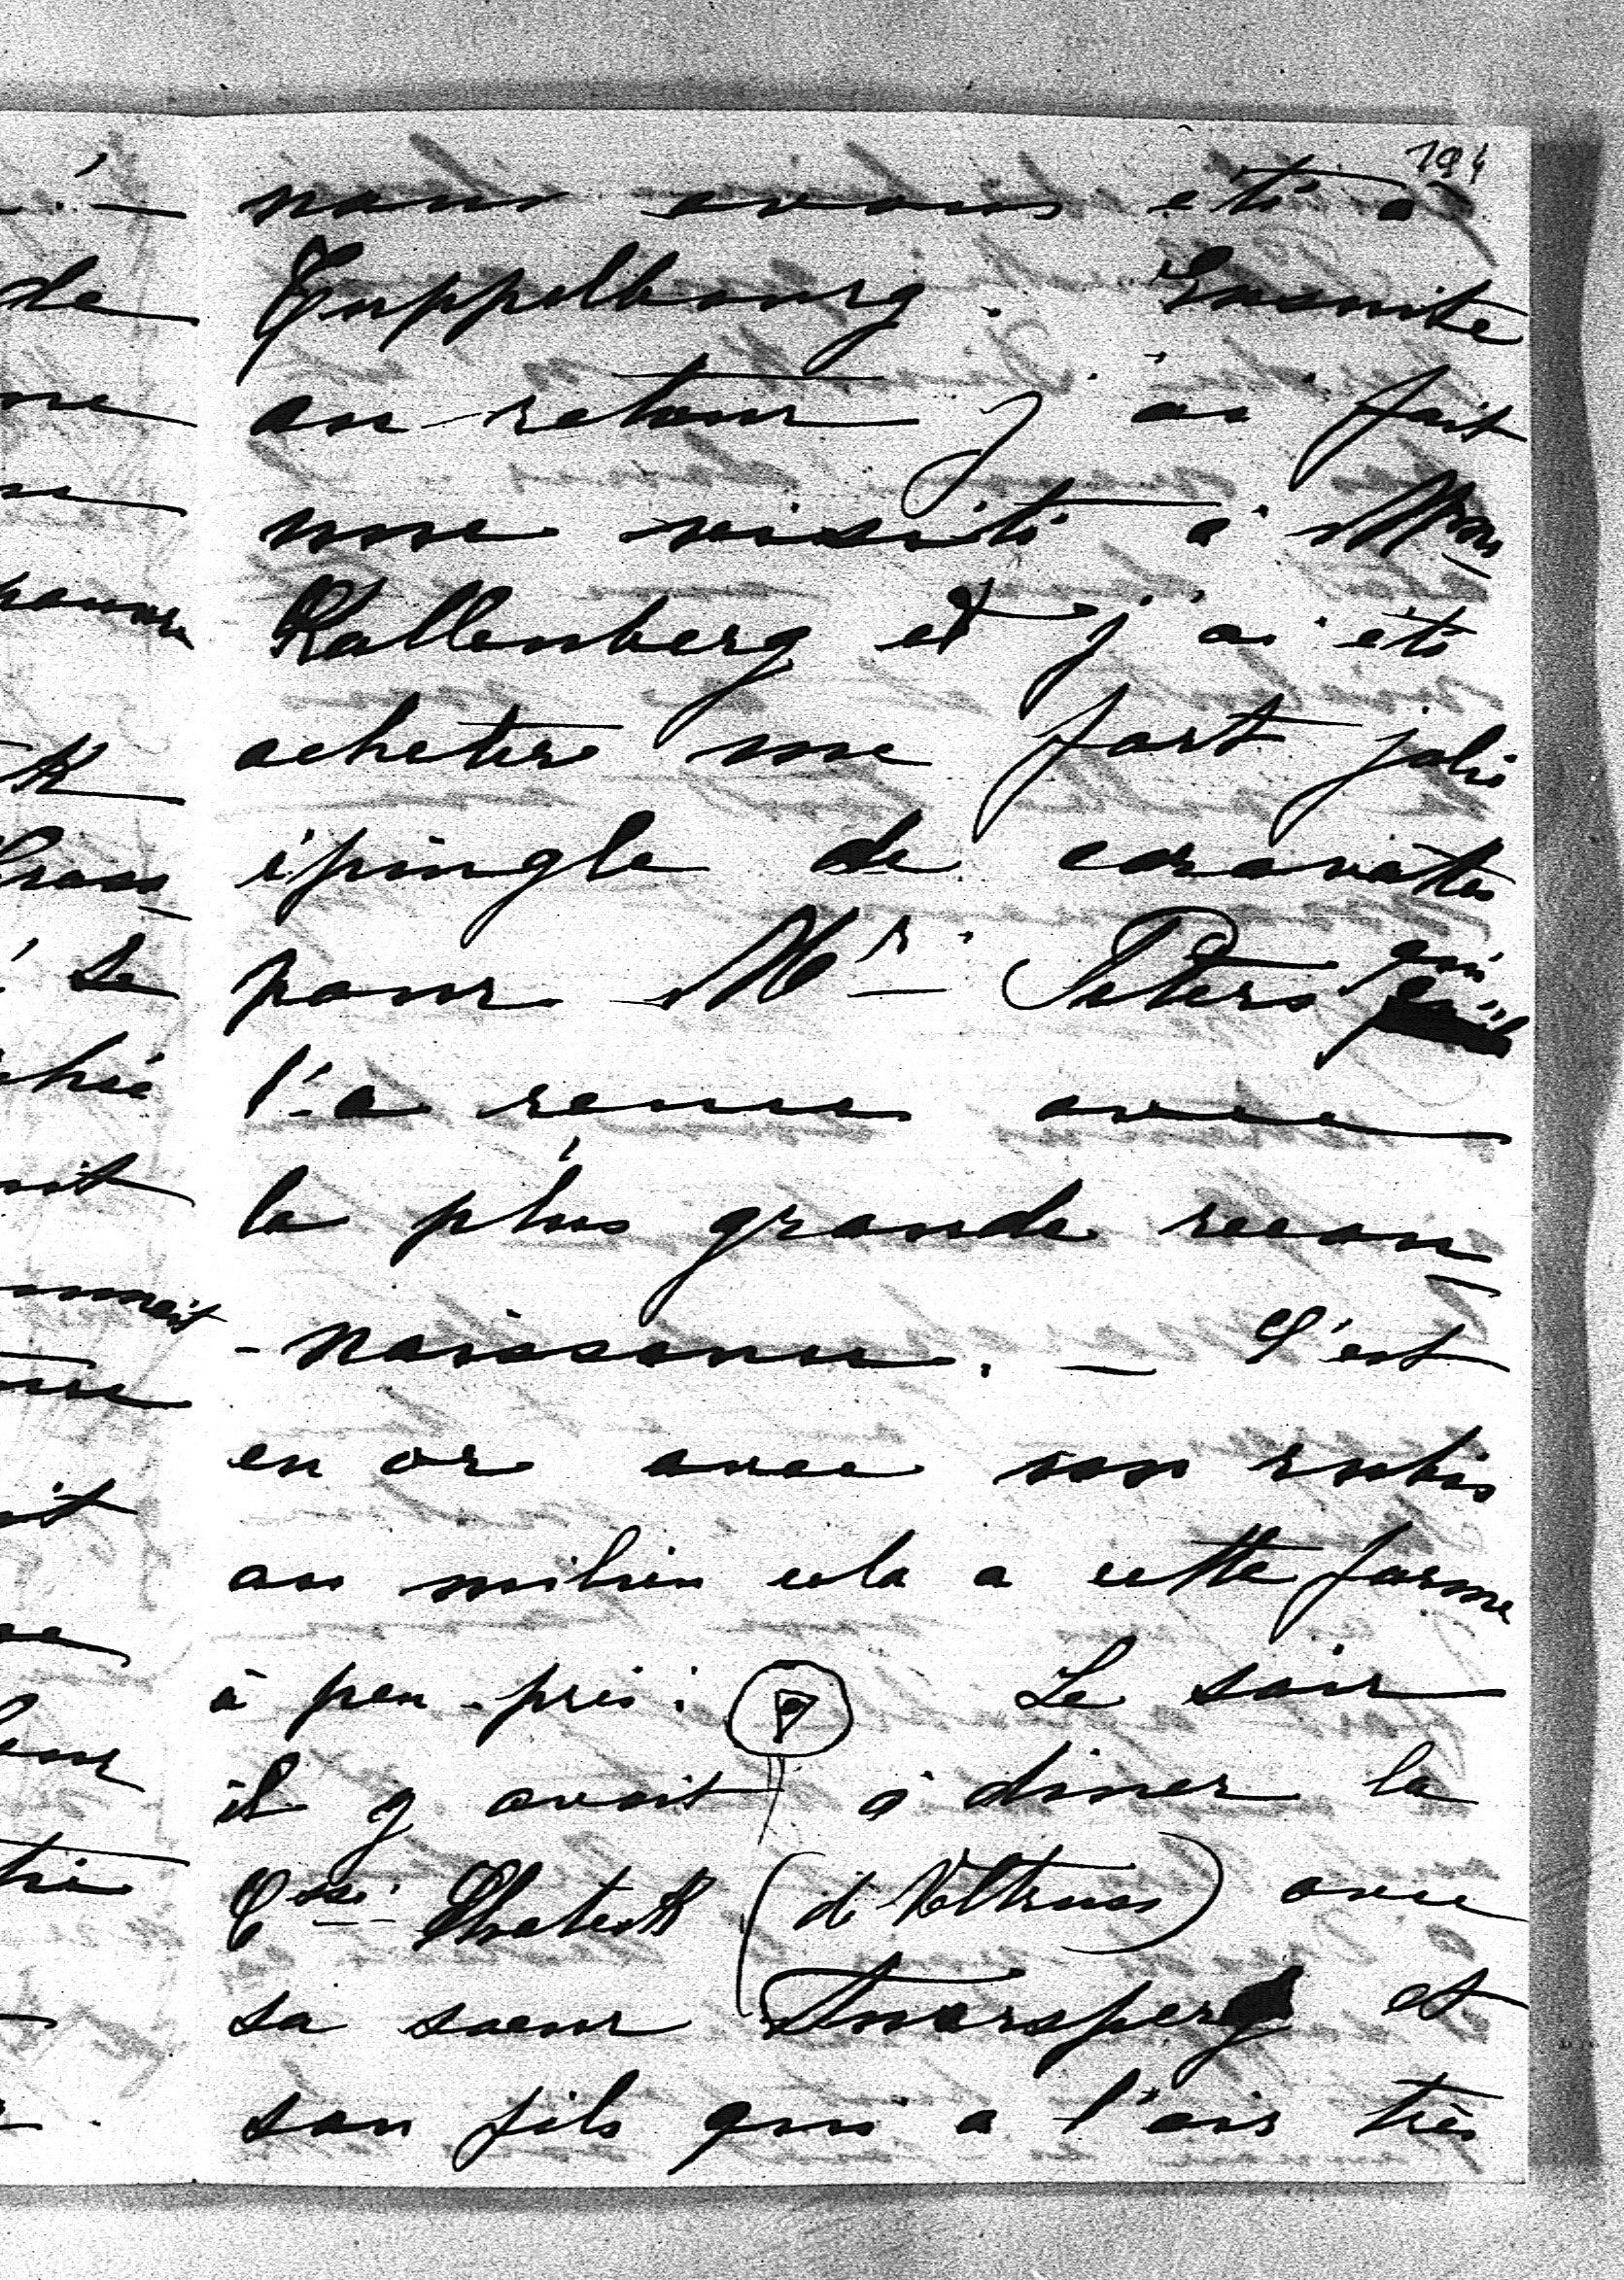 194
nous avons été à
Tuppelbourg. Ensuite
au retour j'ai fait
une visite à Mme
Kallenberg et j'ai été
acheter une fort jolie
épingle de cravate
pour Mr Peters qui
l'a reçue avec
la plus grande recon-
-naissance. — C'est
en or avec son rubis
au milieu cela a cette forme
à peu près: Le soir
il y avait à diner la
Csse Choteck (de Veltruss) avec
sa soeur Auersperg et
son fils qui a l'air très